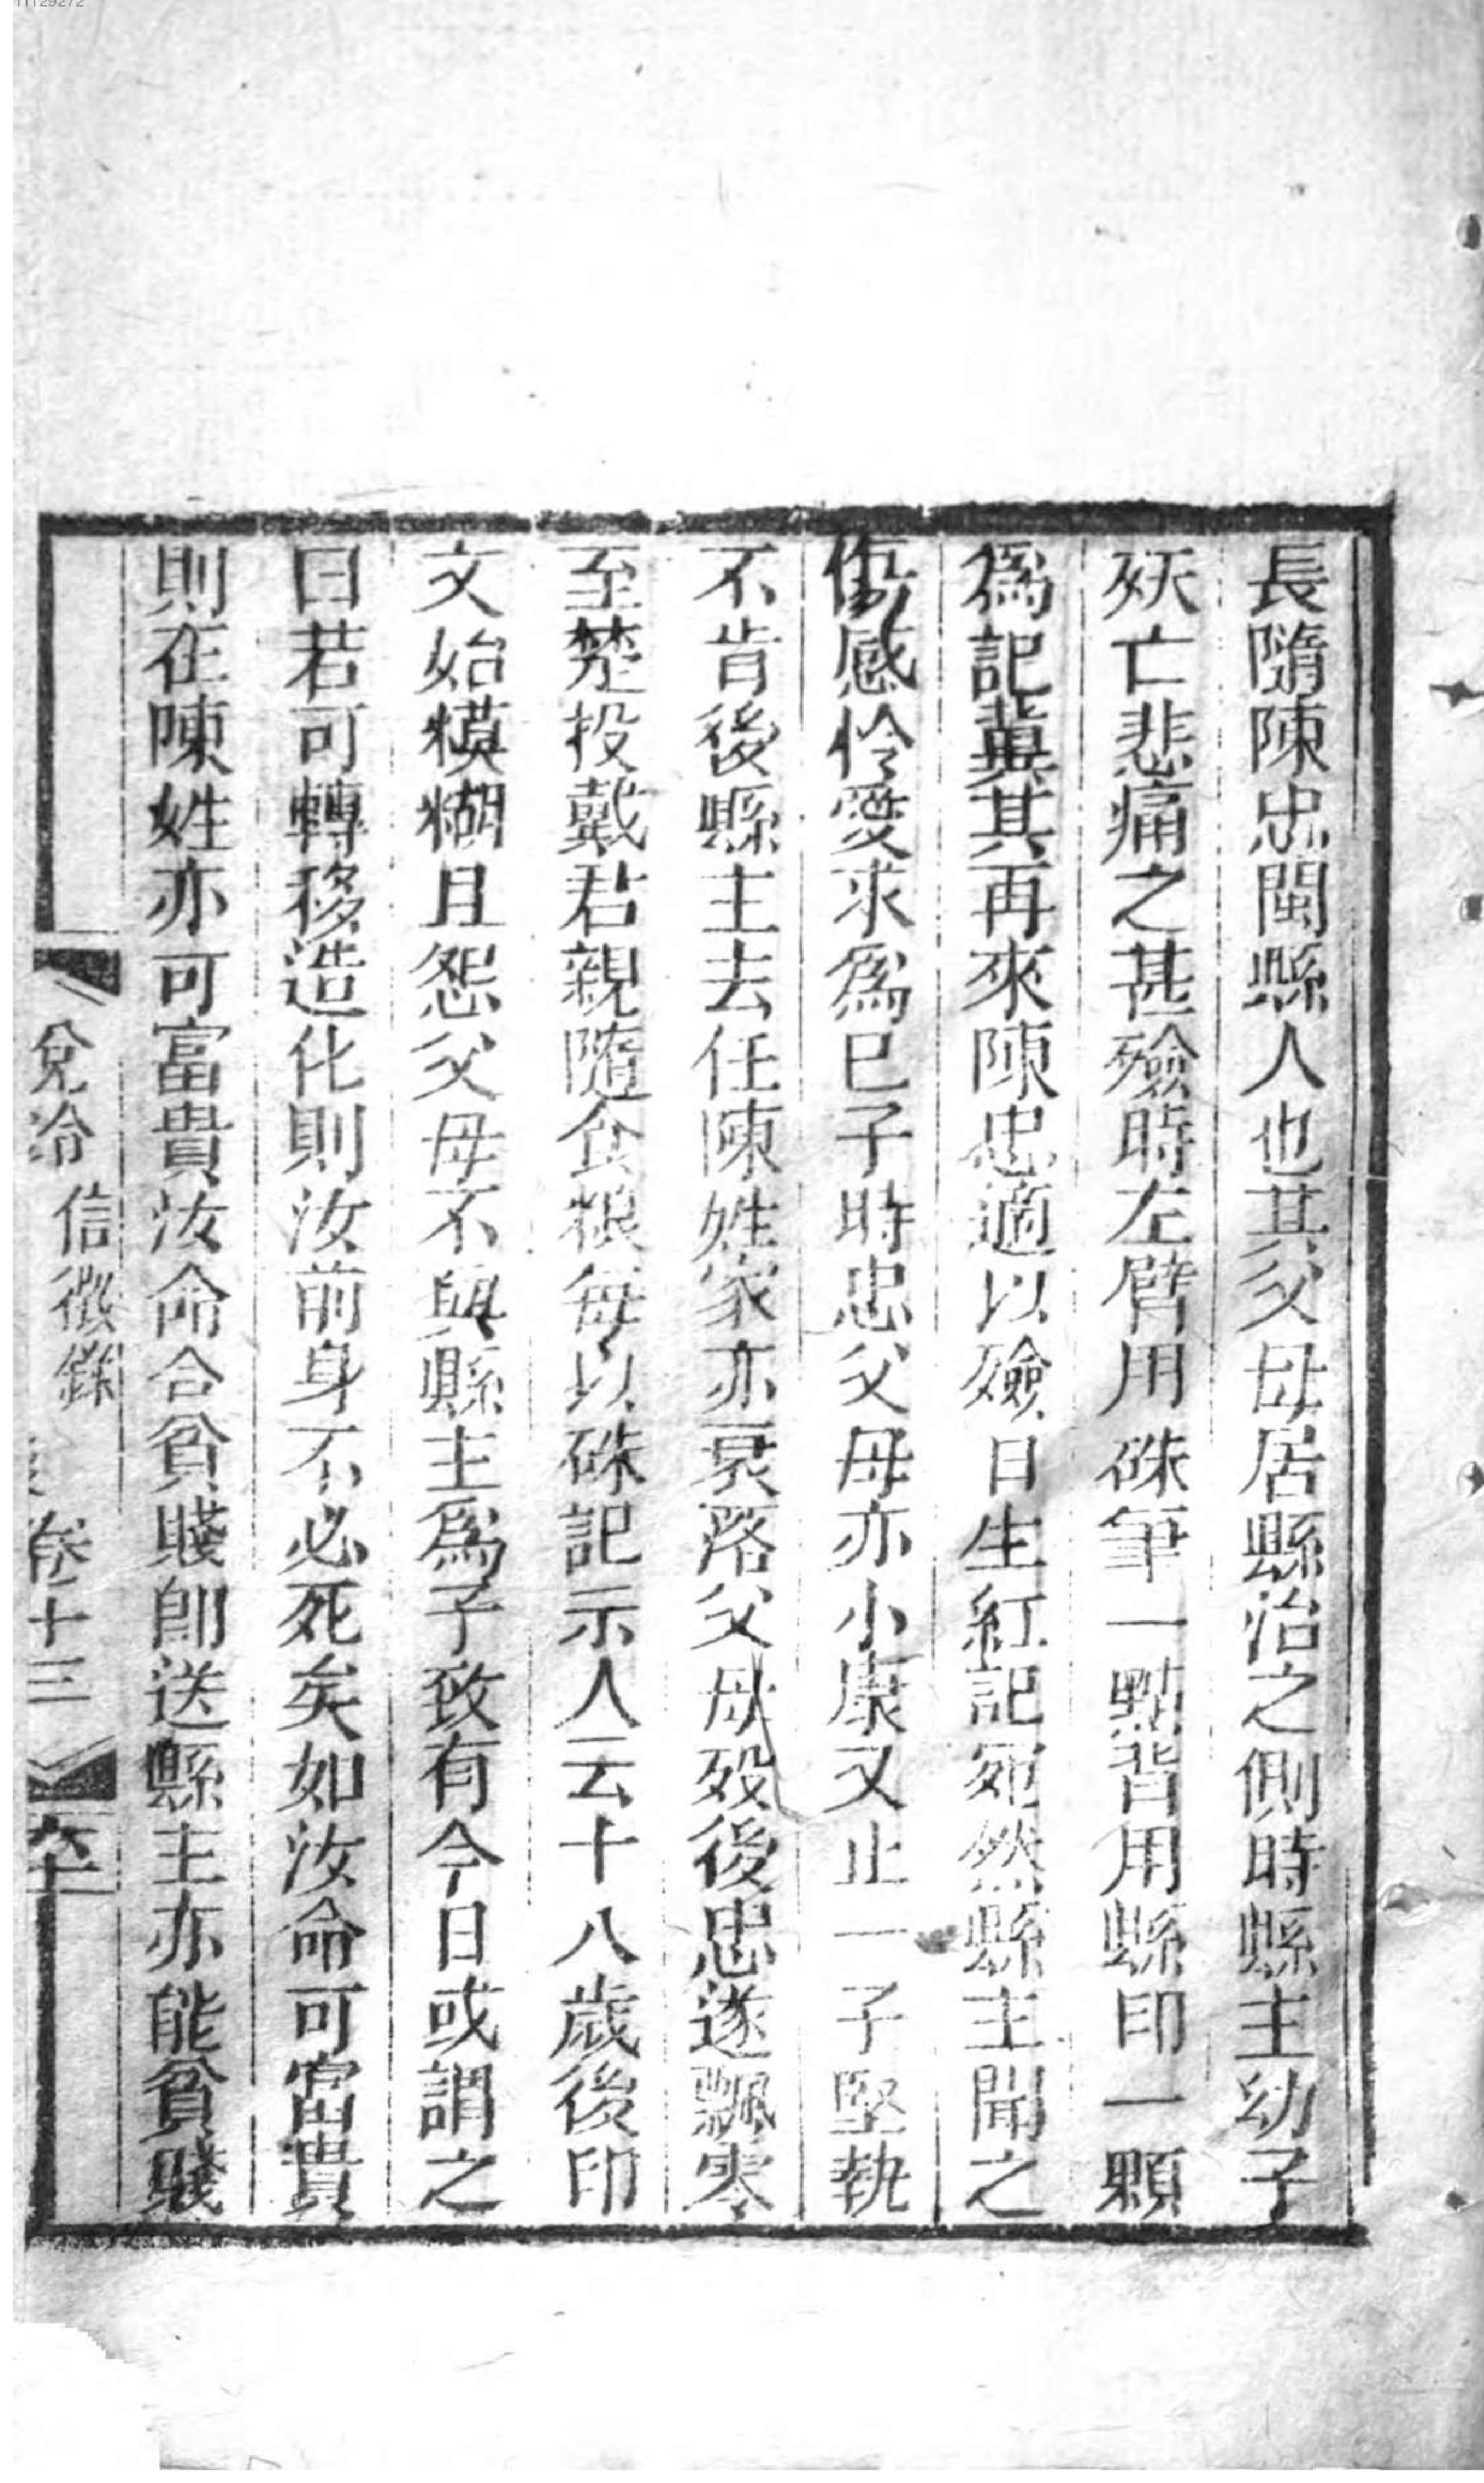 長隨陳忠閩縣人也其父母居縣治之側時縣主幼子
殀亡悲痛之甚殮時左臂用硃筆一點背用縣印一顆
爲記冀其再來陳忠適以殮日生紅記宛然縣主聞之
傷感怜愛求爲已子時忠父母亦小康又止一子堅執
不肯後縣主去任陳姓家亦衰落父母歿後忠遂飄零
至楚投戴君親隨食粮每以硃記示人云十八歲後印
文始糢糊且怨父母不與縣主爲子致有今日或謂之
曰若可轉移造化則汝前身不必死矣如汝命可富貴
則在陳姓亦可富貴汝命合貧賤卽送縣主亦能貧賤
信徵錄
卷十三
11129272